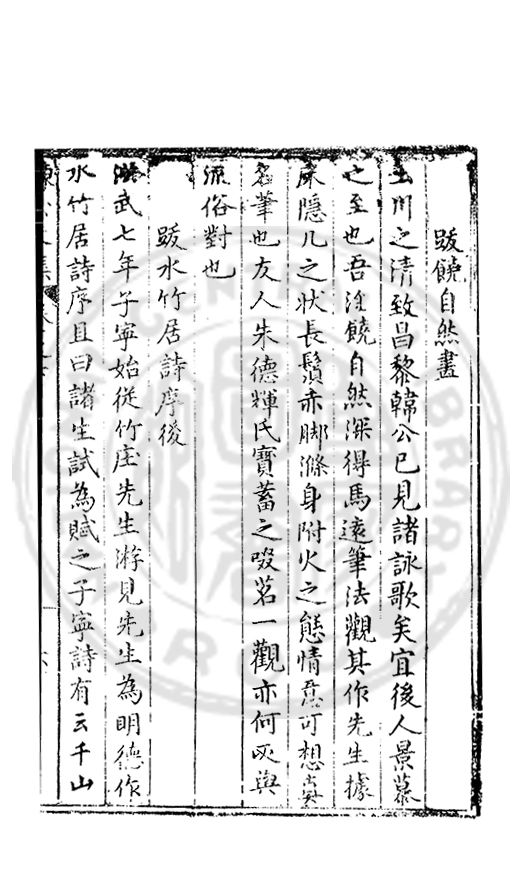 跋饒自然畫
玉川之清致昌黎韓公已見諸詠歌矣宜後人景慕
之至也吾淦饒自然深得馬遠筆法觀其作先生據
床隱几之狀長鬚赤脚滌身附火之態情意可想真
名筆也友人朱德輝氏寶蓄之啜茗一觀亦何必與
流俗對也
跋水竹居詩序後
洪武七年子寧始從竹庄先生游見先生為明德作
水竹居詩序且曰諸生試為賦之子寧詩有云千山